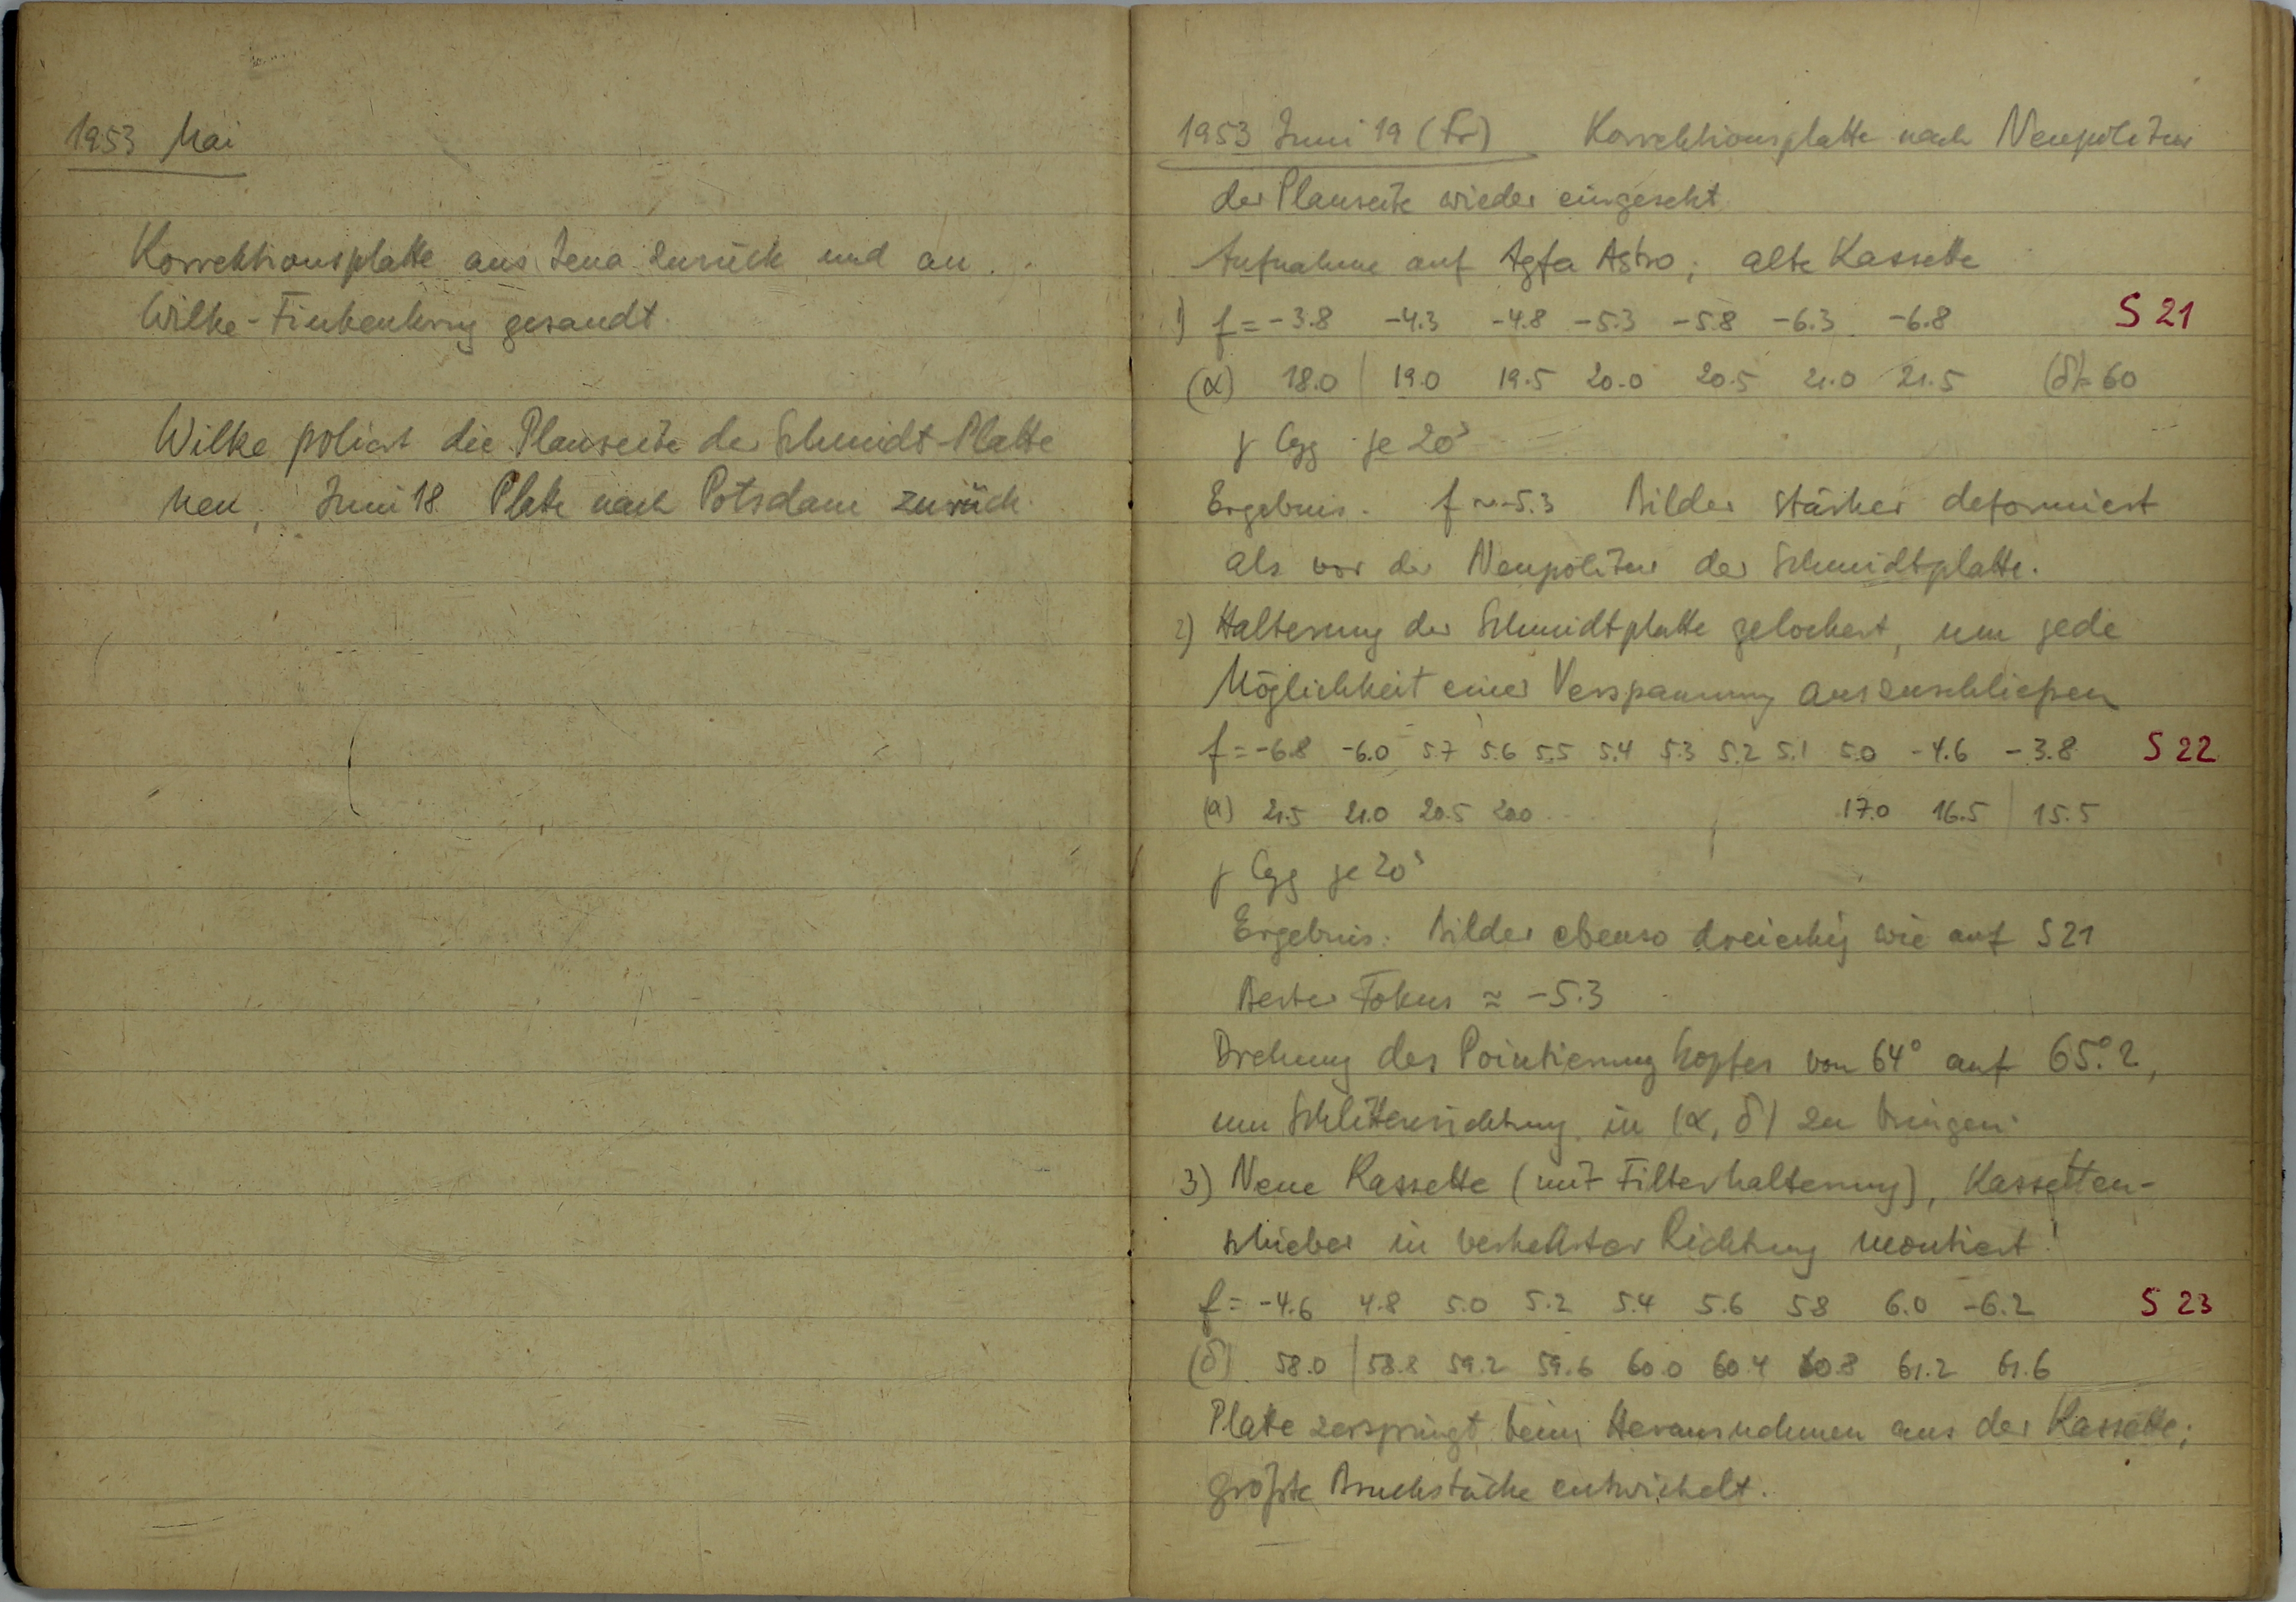 1953 Mai
Korrektionsplatte aus Jena zurück und an
Wilke-Finkenkrug gesandt.
Wilke poliert die Planseite der Schmidt-Platte
neu, Juni 18 Platte nach Potsdam zurück.
1953 Juni 19 (Fr) Korrektionsplatte nach Neupolitur
der Planseite wieder eingesetzt
Aufnahme auf Agfa Astro; alte Kassette
1) f = -3.8 -4.3 -4.8 -5.3 -5.8 -6.3 -6.8 S 21
(α) 18.0 | 19.0 19.5 20.0 20.5 21.0 21.5 (δ)= 60
γ Cyg je 20ˢ
Ergebnis. f ~ -5.3 Bilder stärker deformiert
als vor der Neupolitur der Schmidtplatte.
2) Halterung der Schmidtplatte gelockert, um jede
Möglichkeit einer Verspannung auszuschließen
f = -6.8 -6.0 5.7 5.6 5.5 5.4 5.3 5.2 5.1 5.0 -4.6 -3.8 S 22
(α) 21.5 21.0 20.5 20.0 17.0 16.5 | 15.5
γ Cyg je 20ˢ
Ergebnis: Bilder ebenso dreieckig wie auf S 21
Bester Fokus ≈ -5.3
Drehung des Pointierungkopfes von 64° auf 65°.2,
um Schlittenrichtung in (α, δ) zu bringen.
3) Neue Kassette (mit Filterhalterung), Kassetten-
schieber in verkehrter Richtung montiert!
f = -4.6 4.8 5.0 5.2 5.4 5.6 5.8 6.0 -6.2 S 23
(δ) 58.0 | 58.8 59.2 59.6 60.0 60.4 60.8 61.2 61.6
Platte zerspringt beim Herausnehmen aus der Kassette;
größte Bruchstücke entwickelt.